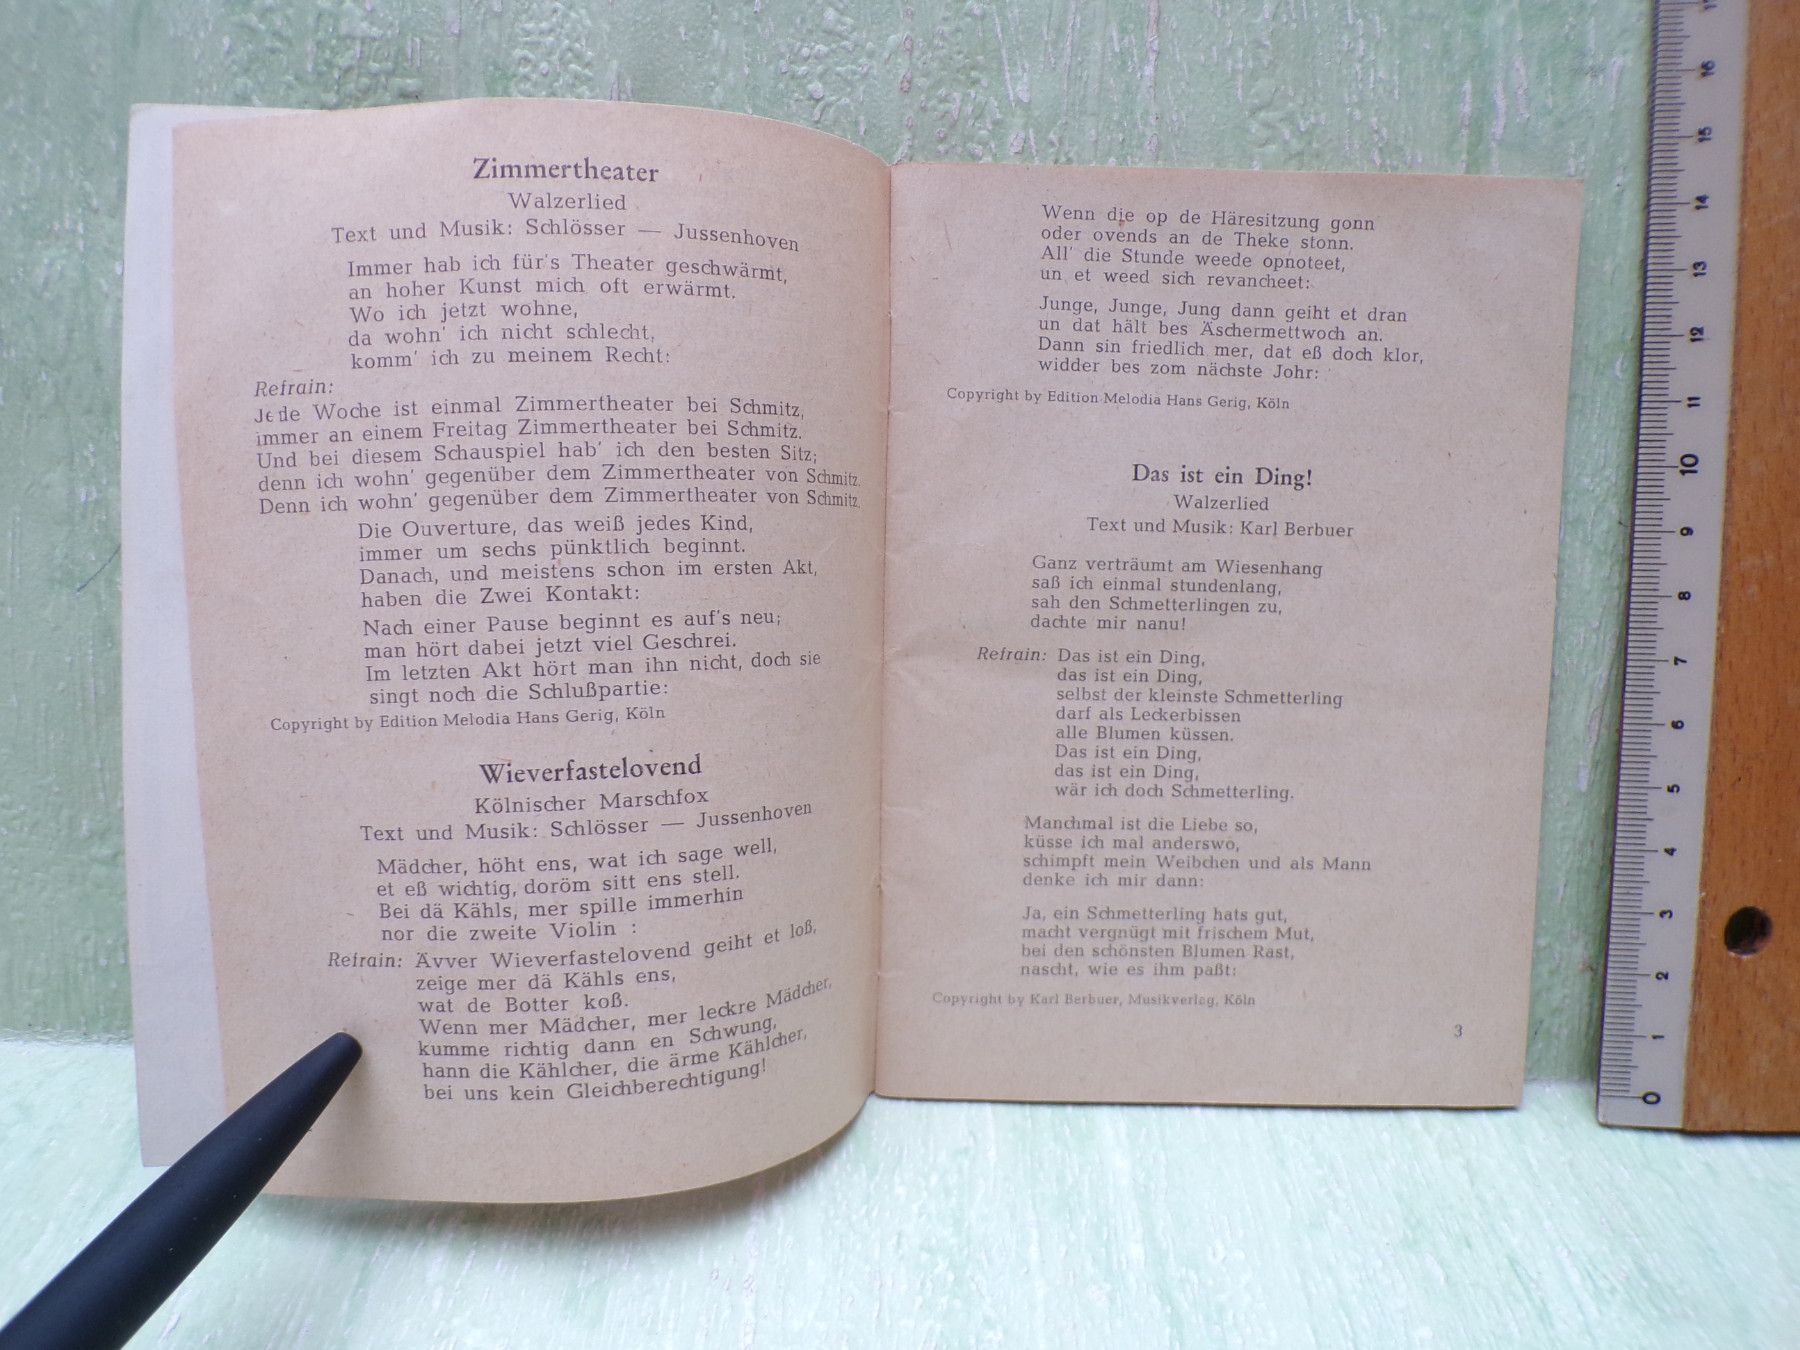 Zimmertheater
Walzerlied
Text und Musik: Schlösser — Jussenhoven
Immer hab ich für's Theater geschwärmt,
an hoher Kunst mich oft erwärmt.
Wo ich jetzt wohne,
da wohn' ich nicht schlecht,
komm' ich zu meinem Recht:
Refrain:
Jede Woche ist einmal Zimmertheater bei Schmitz,
immer an einem Freitag Zimmertheater bei Schmitz.
Und bei diesem Schauspiel hab' ich den besten Sitz;
denn ich wohn' gegenüber dem Zimmertheater von Schmitz.
Denn ich wohn' gegenüber dem Zimmertheater von Schmitz.
Die Ouverture, das weiß jedes Kind,
immer um sechs pünktlich beginnt.
Danach, und meistens schon im ersten Akt,
haben die Zwei Kontakt:
Nach einer Pause beginnt es auf's neu;
man hört dabei jetzt viel Geschrei.
Im letzten Akt hört man ihn nicht, doch sie
singt noch die Schlußpartie:
Copyright by Edition Melodia Hans Gerig, Köln
Wieverfastelovend
Kölnischer Marschfox
Text und Musik: Schlösser — Jussenhoven
Mädcher, höht ens, wat ich sage well,
et eß wichtig, doröm sitt ens stell.
Bei dä Kähls, mer spille immerhin
nor die zweite Violin :
Refrain: Ävver Wieverfastelovend geiht et loß,
zeige mer dä Kähls ens,
wat de Botter koß.
Wenn mer Mädcher, mer leckre Mädcher,
kumme richtig dann en Schwung,
hann die Kählcher, die ärme Kählcher,
bei uns kein Gleichberechtigung!
Wenn die op de Häresitzung gonn
oder ovends an de Theke stonn.
All' die Stunde weede opnoteet,
un et weed sich revancheet:
Junge, Junge, Jung dann geiht et dran
un dat hält bes Äschermettwoch an.
Dann sin friedlich mer, dat eß doch klor,
widder bes zom nächste Johr:
Copyright by Edition Melodia Hans Gerig, Köln
Das ist ein Ding!
Walzerlied
Text und Musik: Karl Berbuer
Ganz verträumt am Wiesenhang
saß ich einmal stundenlang,
sah den Schmetterlingen zu,
dachte mir nanu!
Refrain: Das ist ein Ding,
das ist ein Ding,
selbst der kleinste Schmetterling
darf als Leckerbissen
alle Blumen küssen.
Das ist ein Ding,
das ist ein Ding,
wär ich doch Schmetterling.
Manchmal ist die Liebe so,
küsse ich mal anderswo,
schimpft mein Weibchen und als Mann
denke ich mir dann:
Ja, ein Schmetterling hats gut,
macht vergnügt mit frischem Mut,
bei den schönsten Blumen Rast,
nascht, wie es ihm paßt:
Copyright by Karl Berbuer, Musikverlag, Köln
3
16
15
14
13
12
11
10
9
8
7
6
5
4
3
2
1
0